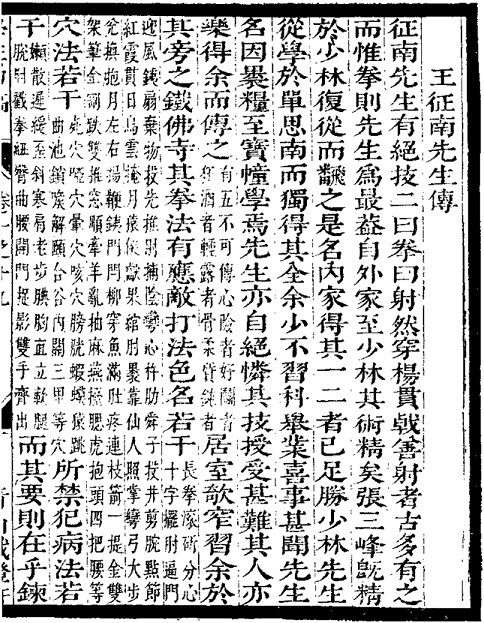 王征南先生傳
征南先生有絕技二曰拳曰射然穿楊貫戟善射者古多有之
而惟拳則先生為最葢自外家至少林其術精矣張三峰既精
於少林復從而翻之是名內家得其一二者已足勝少林先生
從學於單思南而獨得其全余少不習科舉業喜事甚聞先生
名因裹糧至寶幢學焉先生亦自絕憐其技授受甚難其人亦
樂得余而傳之有五不可傳心險者好鬬者狂酒者輕露者骨柔質鈍者居室欹窄習余於
其旁之鐵佛寺其拳法有應敵打法色名若干長拳滾斫分心十字擺肘逼門
迎風鐵扇棄物投先推肘捕陰彎心杵肋舜子投井剪腕點節
紅霞貫日烏雲掩月猿猴獻果綰肘裹靠仙人照掌彎弓大步
兌換抱月左右揚鞭鐵門閂柳穿魚滿肚疼連枝箭一提金雙
架筆金剛跌雙推窗順牽羊亂抽麻燕擡腮虎抱頭四把腰等
穴法若干死穴啞穴暈穴咳穴膀胱蝦蟆猿跳曲池鎖喉解頤合谷內關三里等穴所禁犯病法若
干嬾散遲緩歪斜寒肩老步腆胸直立軟腿脫肘戳拳紐臀曲腰開門捉影雙手齊出而其要則在乎鍊